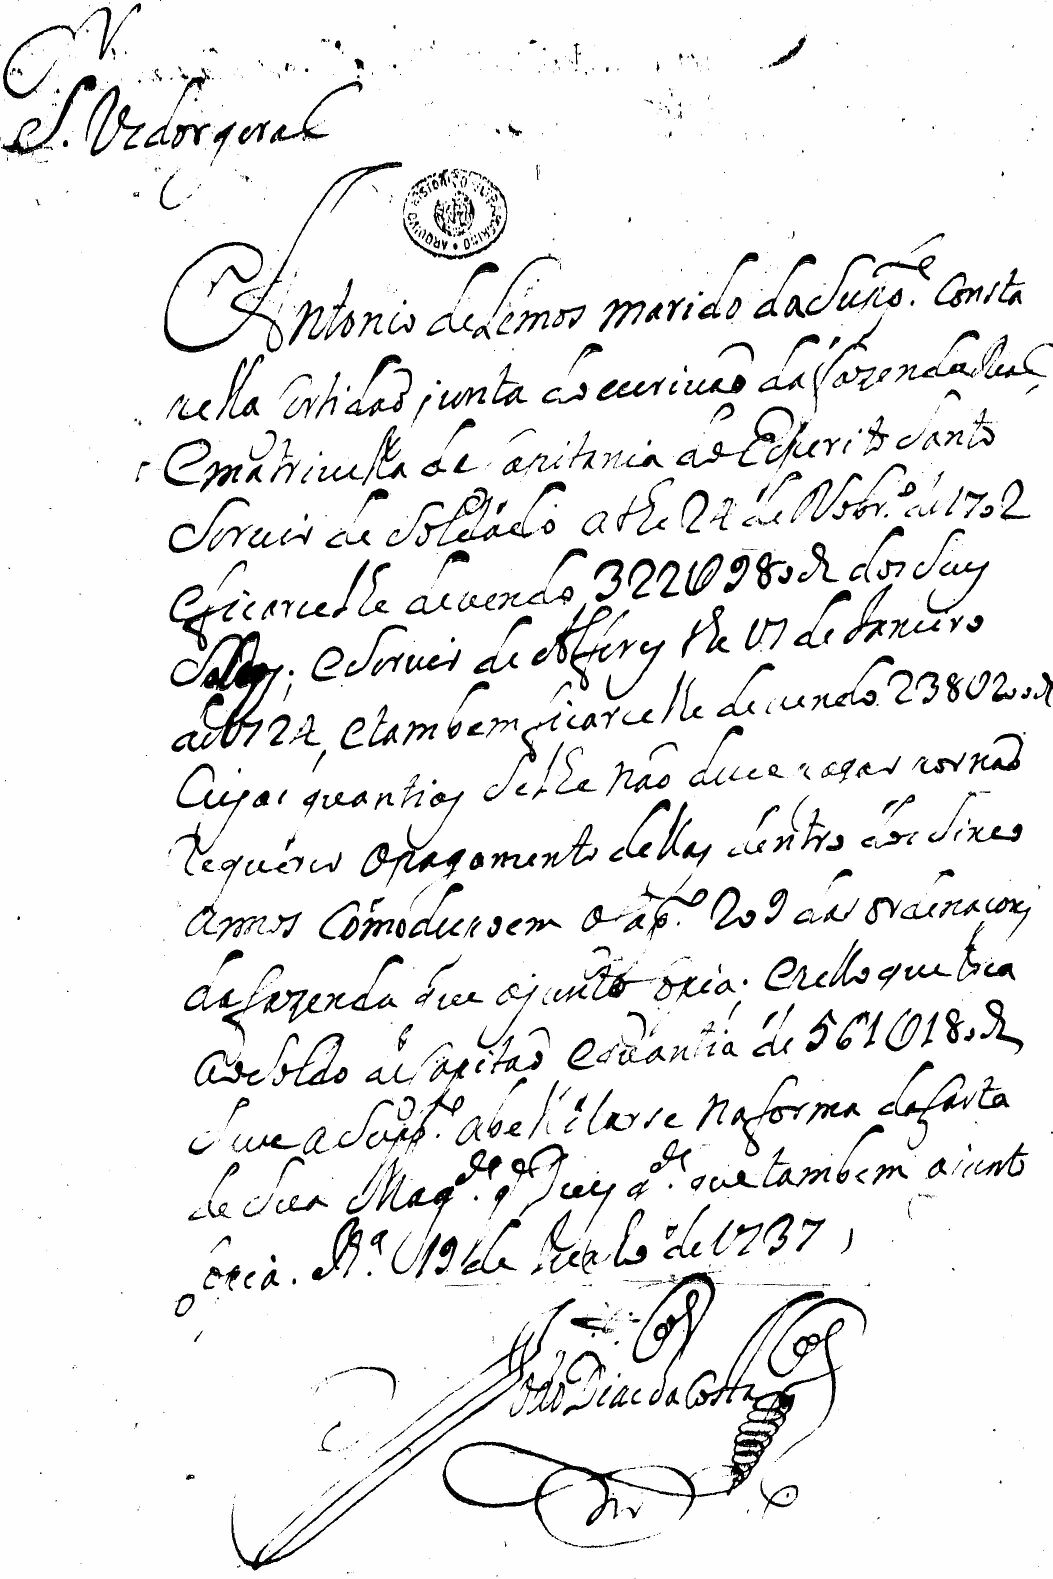 S. Vedor geral
ARQUIVO HISTORICO ULTRAMARINO
Antonio de Lemos marido da Sup.e Consta
pella certidaõ junta do escrivaõ da fazenda Real
e matricula da Capitania do Espirito Santo
servir de soldado athe 24 de Nobr.o de 1702
e ficarselhe devendo 322U980 R dos seus
soldos; e servir de Alferes the 17 de Janeiro
de 1724, e tambem ficarselhe devendo 23802
Cujas quantias selhe naõ deve pagar por naõ
requerer o pagamento dellas dentro dos sinco
annos como dispoem o Cap.o 209 das ordenaçoẽs
da fazenda que ajunto copia; e pello que toca
ao Soldo de Capitaõ e quantia de 561U180 R
deve a Sup.e abelitarse na forma da Carta
de Sua Mag.de q D.s g.de que tambem ajunto
copia. B.a 19 de Julho de 1737
Joaõ Dias da Costa